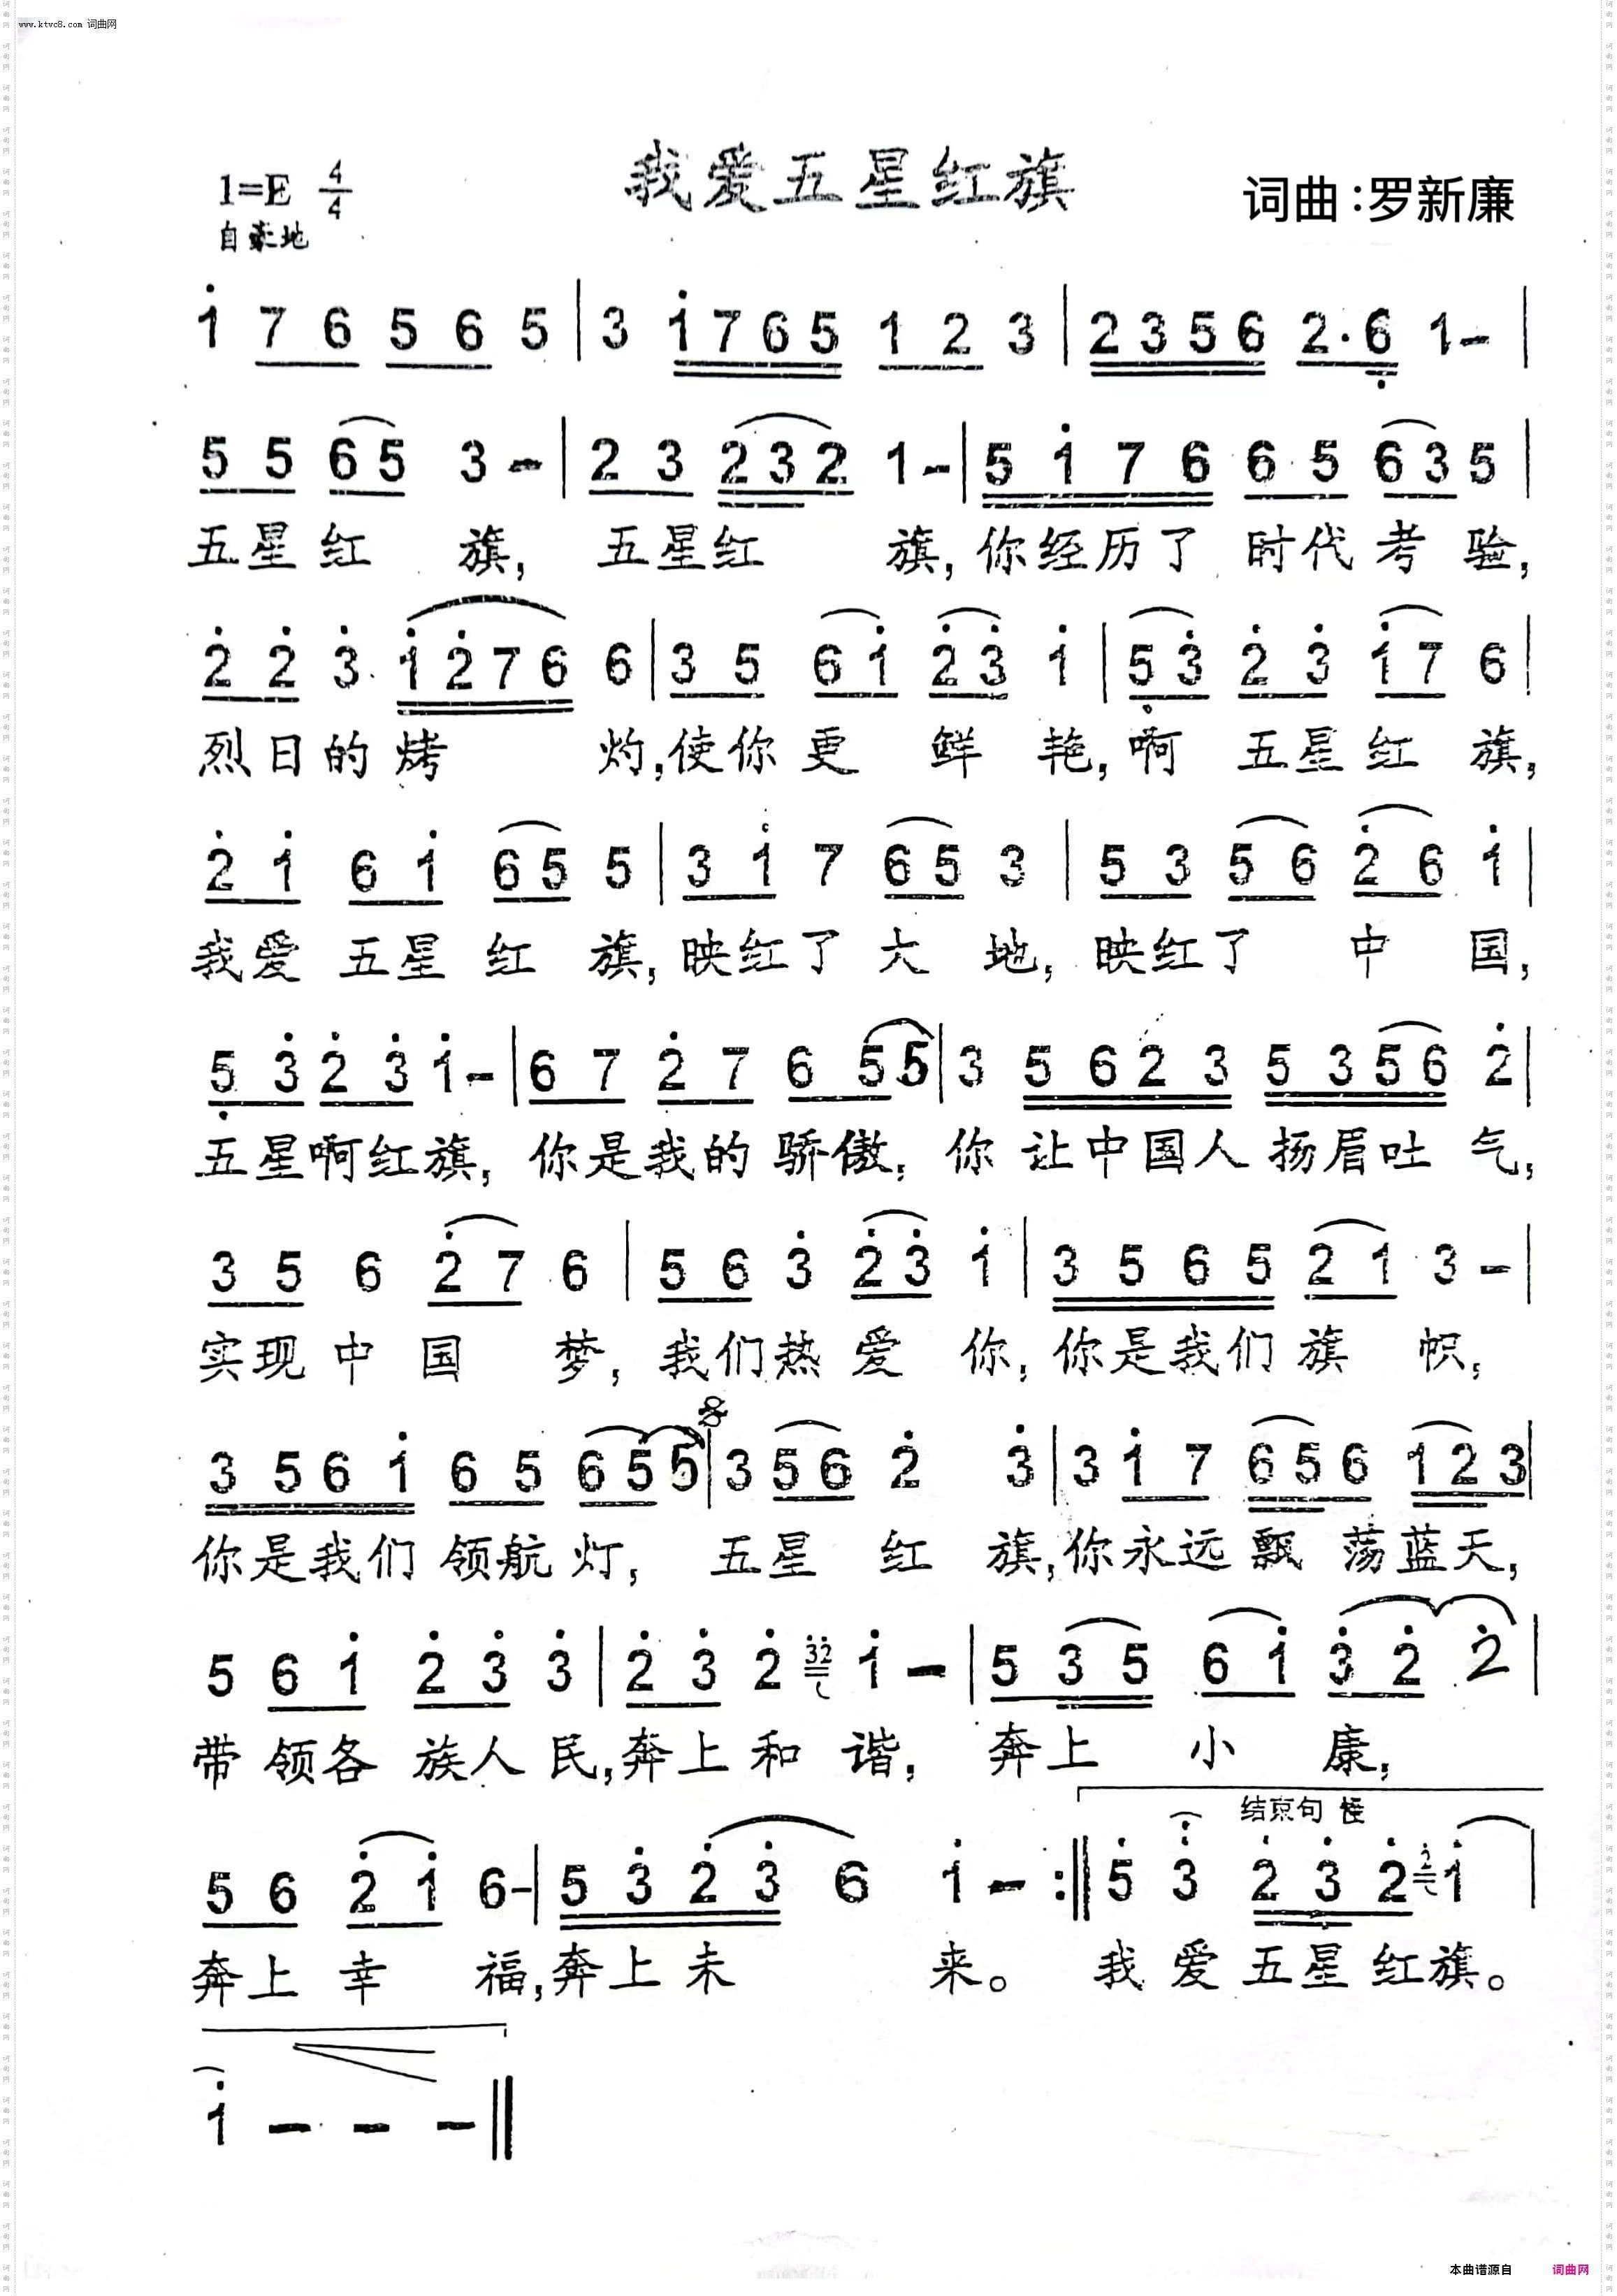 www.ktvc8.com 词曲网
我爱五星红旗
1=E 4/4
词曲:罗新廉
自豪地
1 7 6 5 6 5 | 3 1 7 6 5 1 2 3 | 2 3 5 6 2·6 1- |
5 5 6 5 3- | 2 3 2 3 2 1- | 5 1 7 6 6 5 6 3 5 |
五星红 旗, 五星红 旗,你经历了 时代考 验,
2 2 3 1 2 7 6 6 | 3 5 6 1 2 3 1 | 5 3 2 3 1 7 6 |
烈日的烤 灼,使你更 鲜 艳,啊 五星红 旗,
2 1 6 1 6 5 5 | 3 1 7 6 5 3 | 5 3 5 6 2 6 1 |
我爱 五星 红 旗,映红了 大 地,映红了 中 国,
5 3 2 3 1- | 6 7 2 7 6 5 5 | 3 5 6 2 3 5 3 5 6 2 |
五星啊红旗,你是我的骄傲,你让中国人扬眉吐 气,
3 5 6 2 7 6 | 5 6 3 2 3 1 | 3 5 6 5 2 1 3- |
实现中 国 梦,我们热 爱 你,你是我们旗 帜,
3 5 6 1 6 5 6 5 5 | 3 5 6 2 3 | 3 1 7 6 5 6 1 2 3 |
你是我们 领航 灯, 五星 红 旗,你永远飘 荡蓝天,
5 6 1 2 3 3 | 2 3 2 32 1 - | 5 3 5 6 1 3 2 2 |
带 领各 族人 民,奔上和 谐, 奔上 小 康,
结束句
5 6 2 1 6- | 5 3 2 3 6 1 - :|| 5 3 2 3 2 2 1 |
奔上 幸 福,奔上未 来。 我 爱 五星红旗。
1 - - - ||
本曲谱源自 词曲网